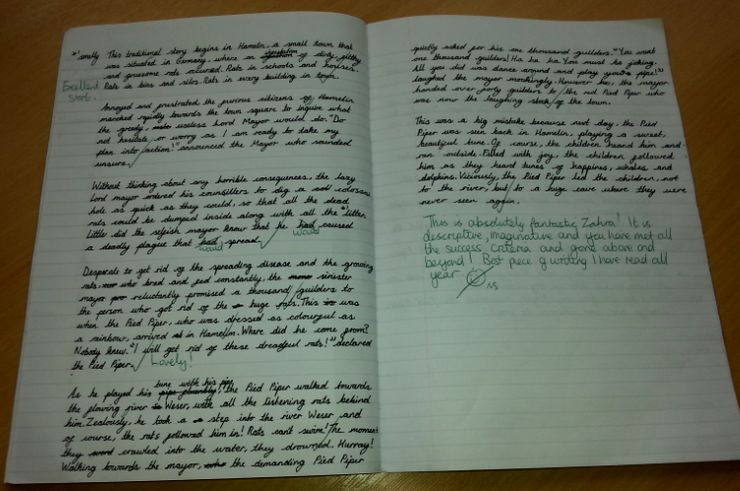 This traditional story begins in Hamelin, a small town that
was situated in Germany, where an infestation of dirty, filthy
and gruesome rats occured. Rats in schools and houses.
Excellent Start.
Rats in bins and silos. Rats in every building in town.
Annoyed and frustrated, the furious citizens of Hamelin
marched rapidly towards the town square to inquire what
the greedy, useless Lord Mayor would do. "Do
not hesitate or worry as I am ready to take my
plan into action!" announced the Mayor who sounded
unsure.
Without thinking about any horrible consequences, the lazy
Lord mayor ordered his counsillers to dig a colossal
hole as quick as they would, so that all the dead
rats could be dumped inside along with all the litter.
Little did the selfish mayor know that he had caused
would
a deadly plague that had spread.
would
Desperate to get rid of the spreading disease and the growing
rats, who bred and fed constantly, the sinister
mayor reluctantly promised a thousand guilders to
the person who got rid of the huge rats. This was
when the Pied Piper, who was dressed as colourful as
a rainbour, arrived in Hamelin. Where did he come from?
Nobody knew. "I will get rid of these dreadful rats!" declared
the Pied Piper.
Lovely!
As he played his tune with his pipe, the Pied Piper walked towards
the flowing river Weser, with all the listening rats behind
him. Zealously, he took a step into the river Weser and
of course, the rats followed him in! Rats can't swim! The moment
they crawled into the water, they drowned. Hurray!
Walking towards the mayor, the demanding Pied Piper
quietly asked for his one thousand guilders. "You want
one thousand guilders? Ha ha ha. You must be joking.
All you did was dance around and play your pipe!"
laughed the mayor mockingly. However he, the mayor
handed over forty guilders to the red Pied Piper who
was now the laughing stock of the town.
This was a big mistake because next day, the Pied
Piper was seen back in Hamelin, playing a sweet,
beautiful tune. Of course, the children heard him and
ran outside. Filled with joy, the children followed
him as they heard tunes of happiness, whales and
dolphins. Viciously, the Pied Piper led the children, not
to the river, but to a huge cave where they were
never seen again.
This is absolutely fantastic Zahra! It is
descriptive, imaginative and you have met all
the success criteria and gone above and
beyond! Best piece of writing I have read all
year